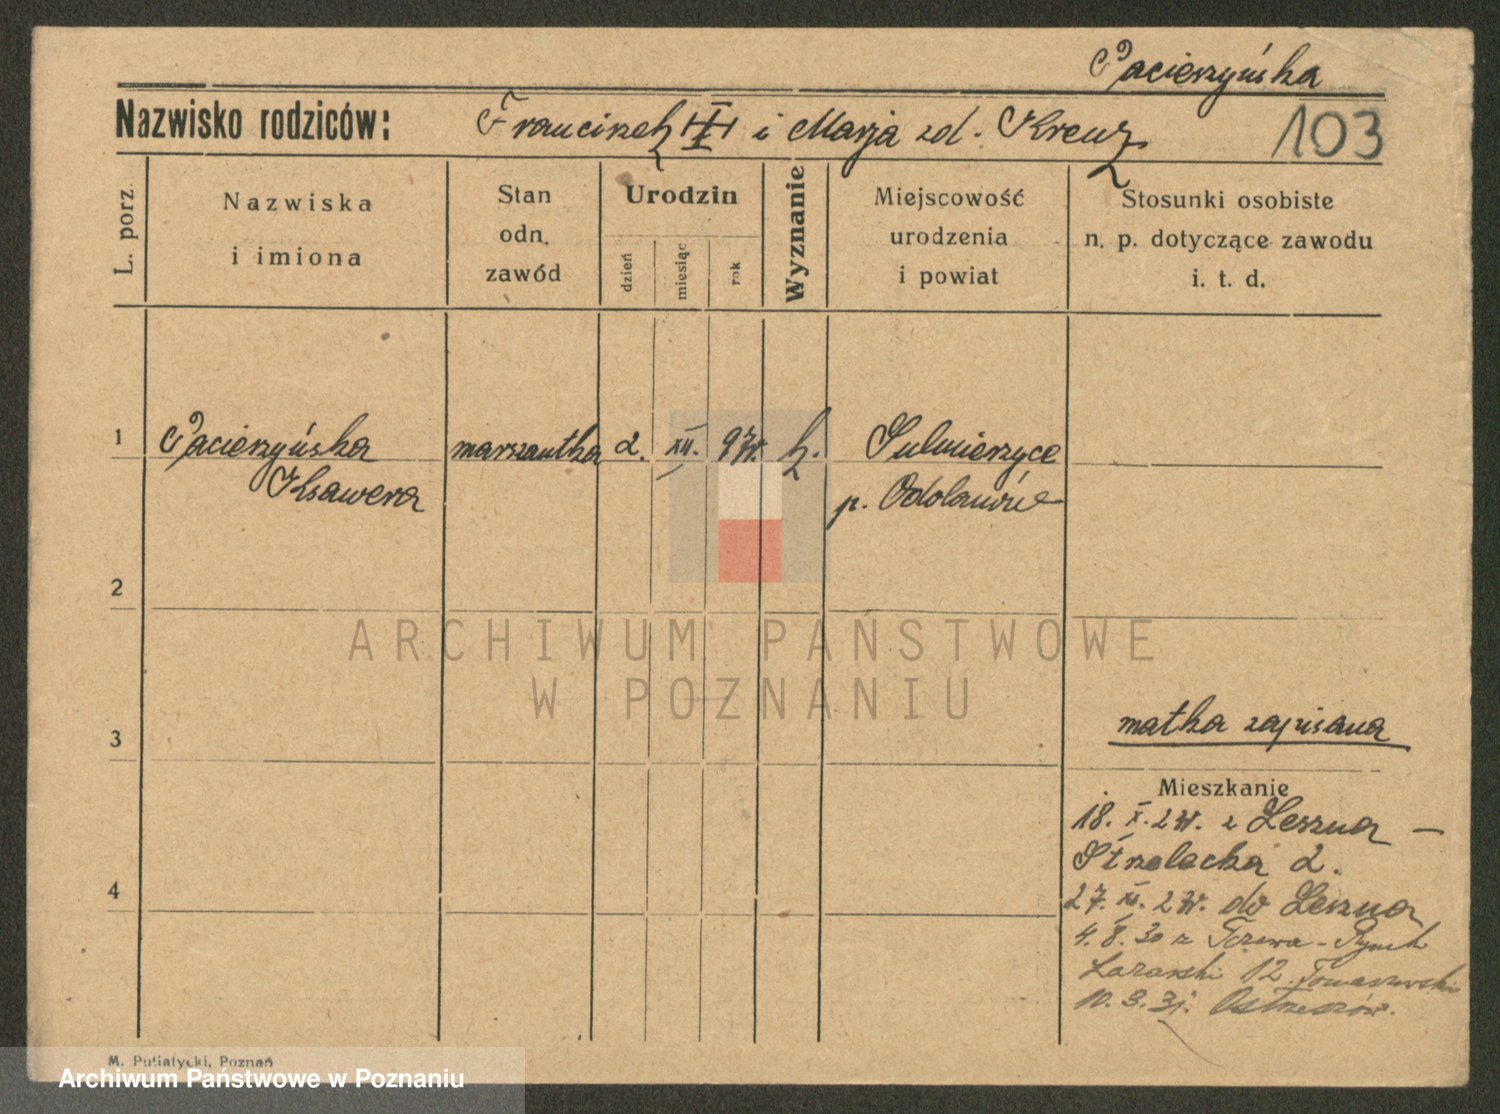 Pacierzyńska
Nazwisko rodziców: Franciszek i Marja zd. Kreuz
103
L. porz.
Nazwiska
i imiona
Stan
odn.
zawód
Urodzin
dzień
miesiąc
rok
Wyznanie
Miejscowość
urodzenia
i powiat
Stosunki osobiste
n. p. dotyczące zawodu
i. t. d.
1 Pacierzyńska marszantka 2. XII. 97r. k. Sulmierzyce
Ksawera p. Odolanów
2
ARCHIWUM PAŃSTWOWE
W POZNANIU
3
matka zapisana
Mieszkanie
18. X. 27r. z Leszna –
Strzelecka 2.
4
27. XI. 27r. do Leszna
4. 8. 30 z Tczewa - Rynek
Łazarski 12 Tomaszewski
10. 3. 31. Ostrzeszów.
M. Putiatycki, Poznań
Archiwum Państwowe w Poznaniu